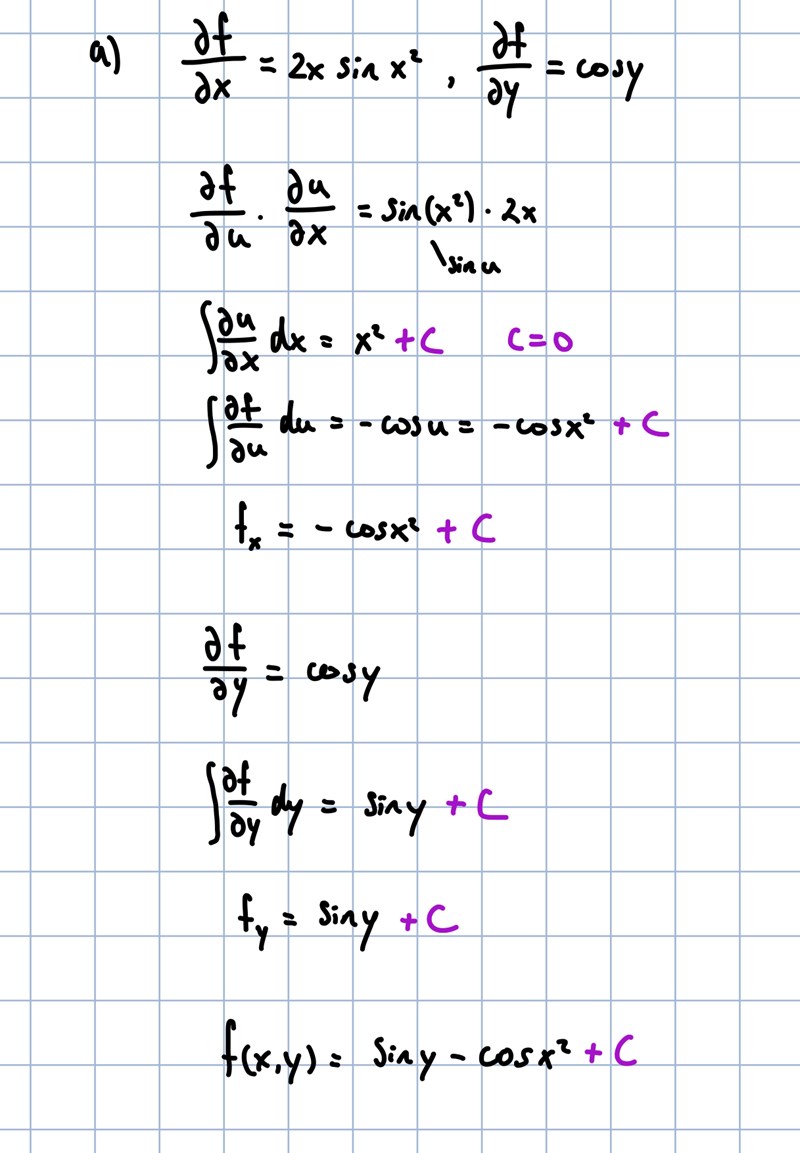 a) ∂f/∂x = 2x sin x² , ∂f/∂y = cosy
∂f/∂u · ∂u/∂x = sin(x²) · 2x
\sin u
∫ ∂u/∂x dx = x² + C   C = 0
∫ ∂f/∂u du = -cosu = -cosx² + C
fₓ = - cosx² + C
∂f/∂y = cosy
∫ ∂f/∂y dy = siny + C
f_y = siny + C
f(x,y) = siny - cosx² + C